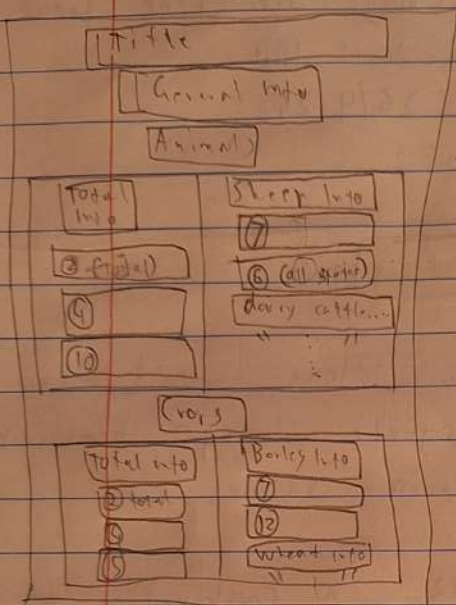 Title
General Info
Animals
Total Info
② (total)
④
⑩
Sheep Info
⑦
⑥ (all sheep)
dairy cattle...
" "
Crops
Total info
② total
④
⑤
Barley Info
⑦
⑫
Wheat info
" "